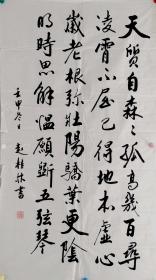 天質自森〻孤高幾百尋
凌霄不屈己得地本虚心
歲老根弥壯陽驕葉更陰
明時思解愠願斷五弦琴
壬申冬日 桂林書